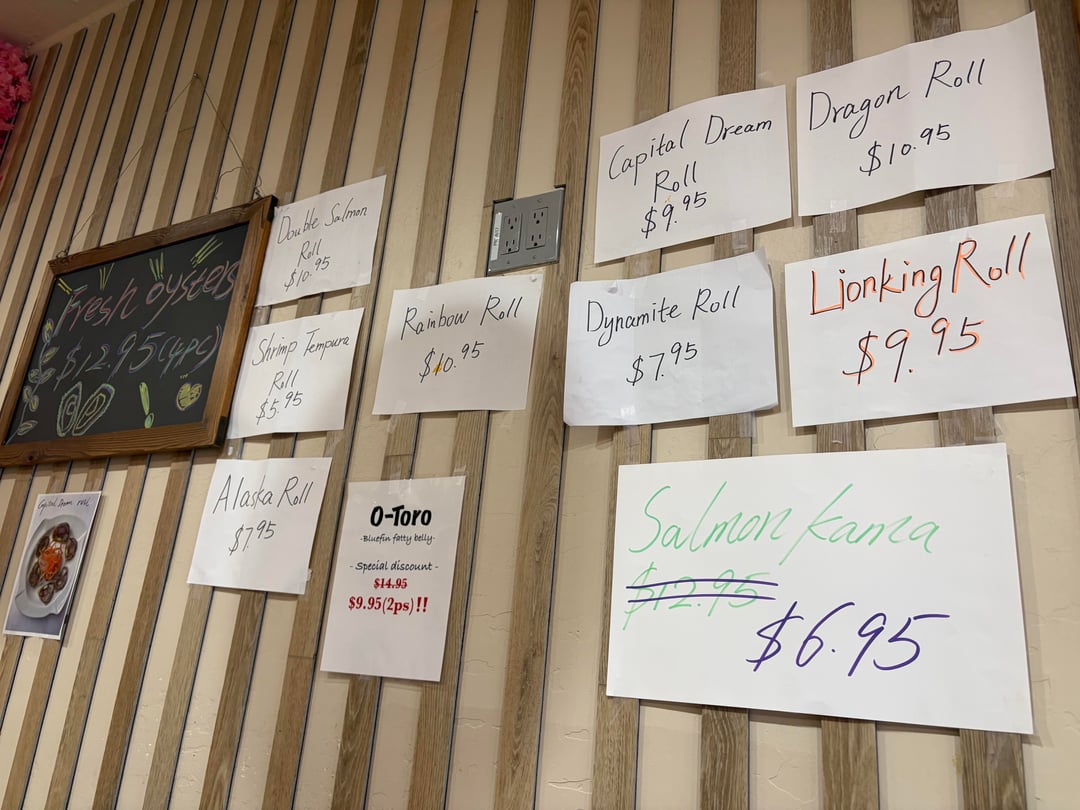 Fresh oysters
$12.95(4pc)
Double Salmon
Roll
$10.95
Shrimp Tempura
Roll
$5.95
Alaska Roll
$7.95
Capital Dream Roll
Rainbow Roll
$10.95
O-Toro
-Bluefin fatty belly-
- Special discount -
$14.95
$9.95(2ps)!!
Capital Dream
Roll
$9.95
Dragon Roll
$10.95
Dynamite Roll
$7.95
Lionking Roll
$9.95
Salmon kama
$12.95
$6.95